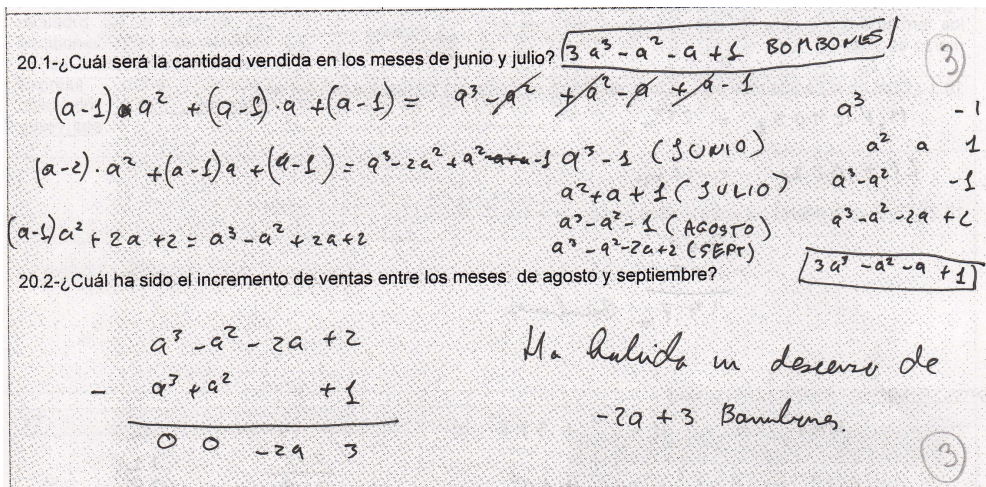 20.1-¿Cuál será la cantidad vendida en los meses de junio y julio? 3a³-a²-a+1 BOMBONES
3
(a-1)·a² + (a-1)·a + (a-1) = a³-a² + a²-a + a-1
(a-2)·a² + (a-1)a + (a-1) = a³-2a²+a²-a+a-1 a³-1 (JUNIO)
a²+a+1 (JULIO)
(a-1)a² + 2a + 2 = a³-a²+2a+2
a³-a²-1 (AGOSTO)
a³-a²-2a+2 (SEPT)
a³ -1
a² a 1
a³-a² -1
a³-a²-2a+2
3a³-a²-a+1
20.2-¿Cuál ha sido el incremento de ventas entre los meses de agosto y septiembre?
a³-a²-2a+2
- a³+a² +1
0 0 -2a 3
Ha habido un descenso de
-2a+3 Bombones.
3